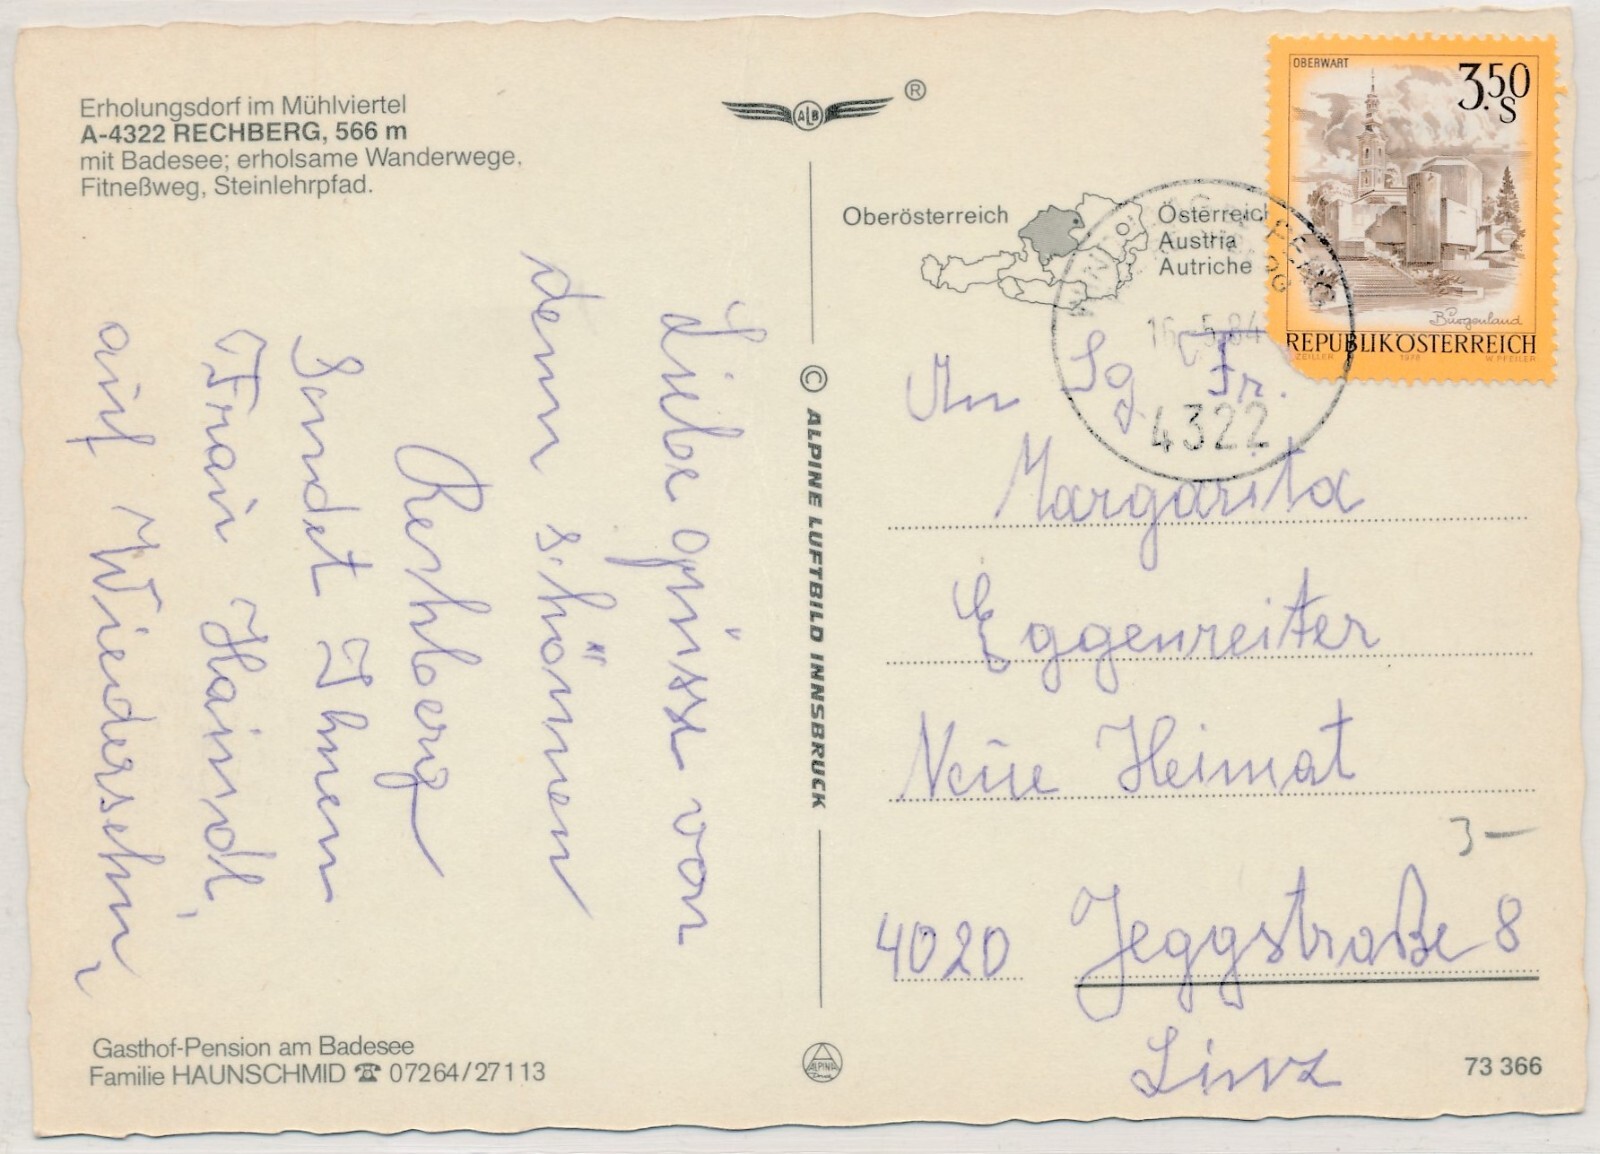 Erholungsdorf im Mühlviertel
A-4322 RECHBERG, 566 m
mit Badesee; erholsame Wanderwege,
Fitneßweg, Steinlehrpfad.
Liebe grüsse von
dem schönen
Rechberg
Sendet Ihnen
Frau Haindl,
auf Wiedersehn,
Gasthof-Pension am Badesee
Familie HAUNSCHMID ☎ 07264/27113
ALB ®
© ALPINE LUFTBILD INNSBRUCK
ALPINA
Oberösterreich
Österreich
Austria
Autriche
OBERWART
3.50
S
Burgenland
REPUBLIK ÖSTERREICH
ZEILER 1978 W. PFEILER
16.-5.84
4322
An Sg Fr.
Margarita
Eggenreiter
Neue Heimat
3-
4020 Jeggstraße 8
Linz
73 366